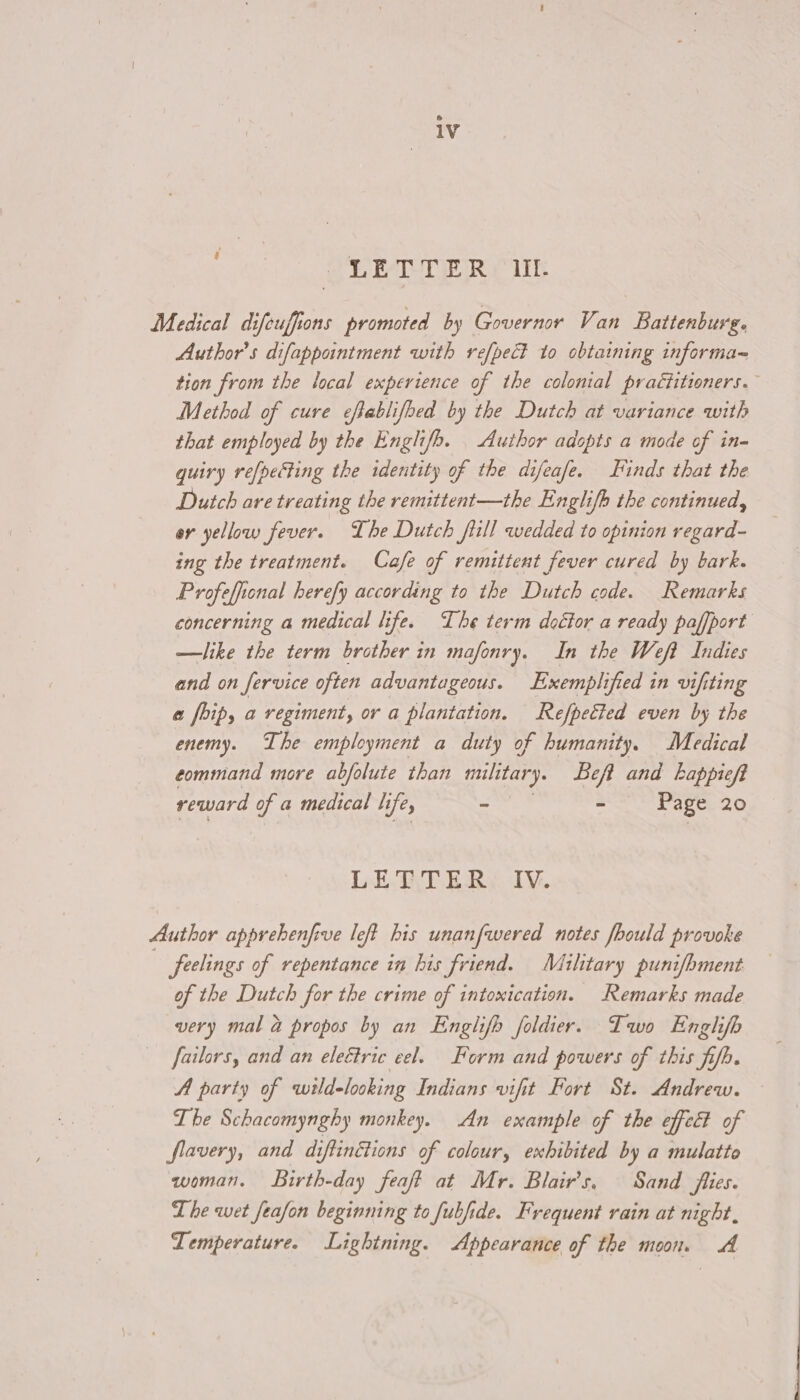 iv
LETTER III.
Medical diſcuſſions promoted by Governor Van Battenburg.
Author's diſappointment with reſpect to obtaining informa-
tion from the local experience of the colonial practitioners.
Method of cure eſtabliſhed by the Dutch at variance with
that employed by the Engliſh. Author adopts a mode of in-
quiry reſpecting the identity of the diſeaſe. Finds that the
Dutch are treating the remittent—the Engliſh the continued,
or yellow fever. The Dutch ſtill wedded to opinion regard-
ing the treatment. Caſe of remittent fever cured by bark.
Profeſſional hereſy according to the Dutch code. Remarks
concerning a medical life. The term doctor a ready paſſport
—like the term brother in maſonry. In the Weſt Indies
and on ſervice often advantageous. Exemplified in viſiting
a ſhip, a regiment, or a plantation. Reſpected even by the
enemy. The employment a duty of humanity. Medical
command more abſolute than military. Beſt and happieſt
reward of a medical life, - - Page 20
LETTER IV.
Author apprehenſive leſt his unanſwered notes ſhould provoke
feelings of repentance in his friend. Military puniſhment
of the Dutch for the crime of intoxication. Remarks made
very mal à propos by an Engliſh ſoldier. Two Engliſh
ſailors, and an electric eel. Form and powers of this fiſh.
A party of wild-looking Indians viſit Fort St. Andrew.
The Schacomynghy monkey. An example of the effect of
ſlavery, and diſtinctions of colour, exhibited by a mulatto
woman. Birth-day feaſt at Mr. Blair's. Sand flies.
The wet ſeaſon beginning to ſubſide. Frequent rain at night.
Temperature. Lightning. Appearance of the moon. A